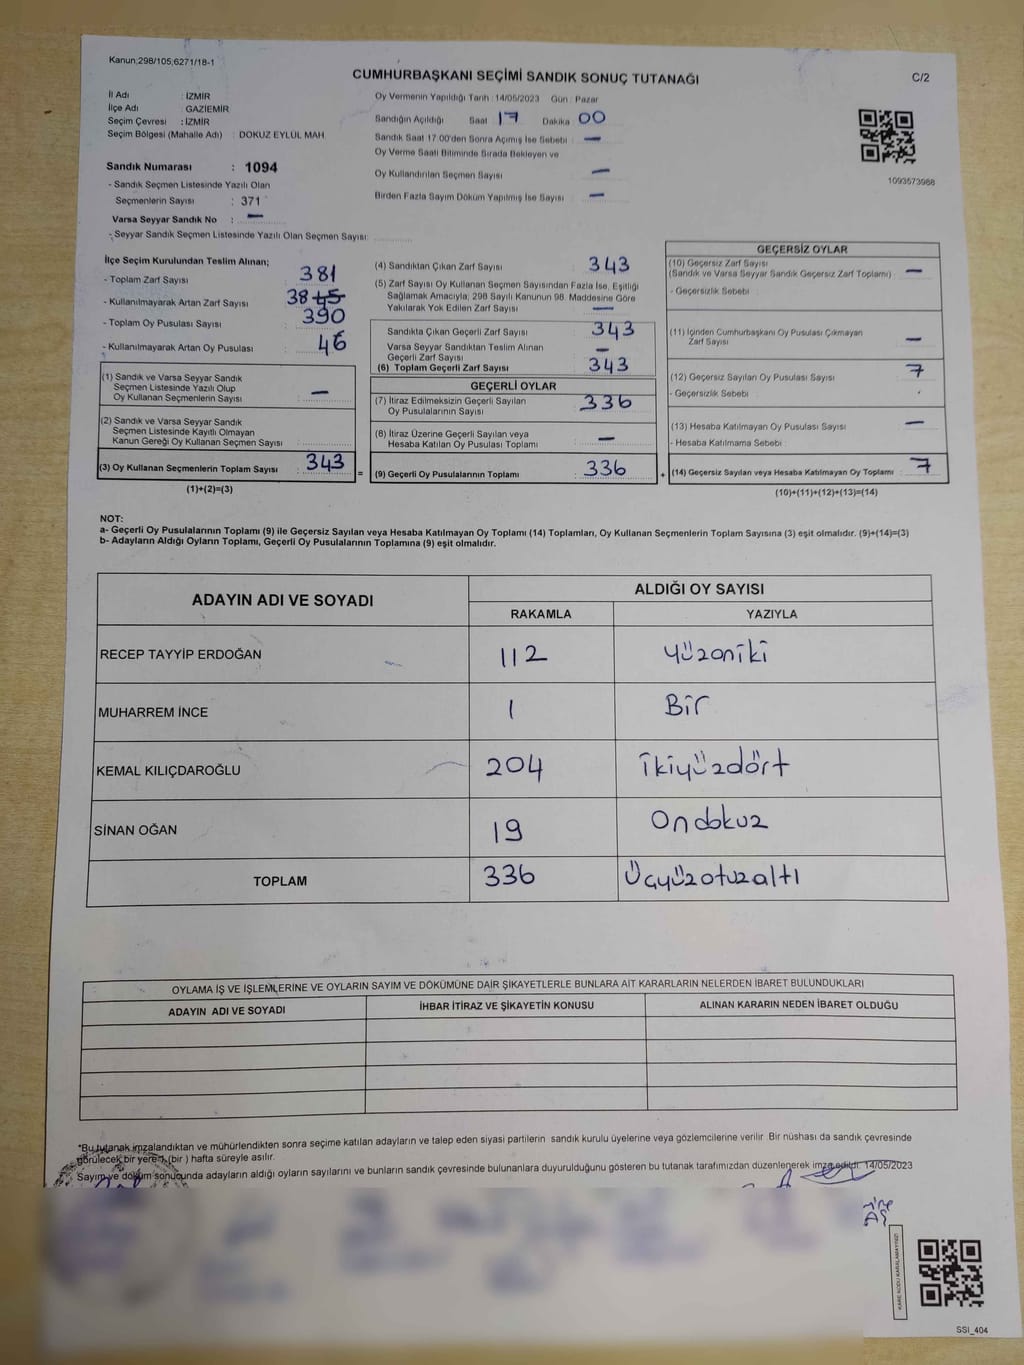 Kanun;298/105;6271/18-1
CUMHURBAŞKANI SEÇİMİ SANDIK SONUÇ TUTANAĞI
C/2
İl Adı : İZMİR
İlçe Adı : GAZİEMİR
Seçim Çevresi : İZMİR
Seçim Bölgesi (Mahalle Adı) : DOKUZ EYLÜL MAH.
Oy Vermenin Yapıldığı Tarih : 14/05/2023 Gün : Pazar
Sandığın Açıldığı Saat 17 Dakika 00
Sandık Saat 17.00'den Sonra Açımış İse Sebebi : —
Oy Verme Saati Bitiminde Sırada Bekleyen ve
Oy Kullandırılan Seçmen Sayısı —
Birden Fazla Sayım Döküm Yapılmış İse Sayısı —
1093573988
Sandık Numarası : 1094
- Sandık Seçmen Listesinde Yazılı Olan
Seçmenlerin Sayısı : 371
Varsa Seyyar Sandık No : —
- Seyyar Sandık Seçmen Listesinde Yazılı Olan Seçmen Sayısı:
İlçe Seçim Kurulundan Teslim Alınan;
- Toplam Zarf Sayısı : 381
- Kullanılmayarak Artan Zarf Sayısı : 38 45
- Toplam Oy Pusulası Sayısı : 390
- Kullanılmayarak Artan Oy Pusulası : 46
(1) Sandık ve Varsa Seyyar Sandık
Seçmen Listesinde Yazılı Olup
Oy Kullanan Seçmenlerin Sayısı : —
(2) Sandık ve Varsa Seyyar Sandık
Seçmen Listesinde Kayıtlı Olmayan
Kanun Gereği Oy Kullanan Seçmen Sayısı :
(3) Oy Kullanan Seçmenlerin Toplam Sayısı : 343
(1)+(2)=(3)
=
(4) Sandıktan Çıkan Zarf Sayısı : 343
(5) Zarf Sayısı Oy Kullanan Seçmen Sayısından Fazla İse, Eşitliği
Sağlamak Amacıyla; 298 Sayılı Kanunun 98. Maddesine Göre
Yakılarak Yok Edilen Zarf Sayısı : —
Sandıkta Çıkan Geçerli Zarf Sayısı : 343
Varsa Seyyar Sandıktan Teslim Alınan
Geçerli Zarf Sayısı : —
(6) Toplam Geçerli Zarf Sayısı : 343
GEÇERLİ OYLAR
(7) İtiraz Edilmeksizin Geçerli Sayılan
Oy Pusulalarının Sayısı : 336
(8) İtiraz Üzerine Geçerli Sayılan veya
Hesaba Katılan Oy Pusulası Toplamı : —
(9) Geçerli Oy Pusulalarının Toplamı : 336
+
GEÇERSİZ OYLAR
(10) Geçersiz Zarf Sayısı
(Sandık ve Varsa Seyyar Sandık Geçersiz Zarf Toplamı) : —
- Geçersizlik Sebebi :
(11) İçinden Cumhurbaşkanı Oy Pusulası Çıkmayan
Zarf Sayısı : —
(12) Geçersiz Sayılan Oy Pusulası Sayısı : 7
- Geçersizlik Sebebi :
(13) Hesaba Katılmayan Oy Pusulası Sayısı : —
- Hesaba Katılmama Sebebi :
(14) Geçersiz Sayılan veya Hesaba Katılmayan Oy Toplamı : 7
(10)+(11)+(12)+(13)=(14)
NOT:
a- Geçerli Oy Pusulalarının Toplamı (9) ile Geçersiz Sayılan veya Hesaba Katılmayan Oy Toplamı (14) Toplamları, Oy Kullanan Seçmenlerin Toplam Sayısına (3) eşit olmalıdır. (9)+(14)=(3)
b- Adayların Aldığı Oyların Toplamı, Geçerli Oy Pusulalarının Toplamına (9) eşit olmalıdır.
ADAYIN ADI VE SOYADI
ALDIĞI OY SAYISI
RAKAMLA YAZIYLA
RECEP TAYYİP ERDOĞAN 112 Yüzoniki
MUHARREM İNCE 1 Bir
KEMAL KILIÇDAROĞLU 204 İkiyüzdört
SİNAN OĞAN 19 Ondokuz
TOPLAM 336 Üçyüzotuzaltı
OYLAMA İŞ VE İŞLEMLERİNE VE OYLARIN SAYIM VE DÖKÜMÜNE DAİR ŞİKAYETLERLE BUNLARA AİT KARARLARIN NELERDEN İBARET BULUNDUKLARI
ADAYIN ADI VE SOYADI İHBAR İTİRAZ VE ŞİKAYETİN KONUSU ALINAN KARARIN NEDEN İBARET OLDUĞU
*Bu tutanak imzalandıktan ve mühürlendikten sonra seçime katılan adayların ve talep eden siyasi partilerin sandık kurulu üyelerine veya gözlemcilerine verilir. Bir nüshası da sandık çevresinde
görülecek bir yere 1 (bir ) hafta süreyle asılır.
Sayım ve döküm sonucunda adayların aldığı oyların sayılarını ve bunların sandık çevresinde bulunanlara duyurulduğunu gösteren bu tutanak tarafımızdan düzenlenerek imza edildi. 14/05/2023
KARE KODU KARALAMAYINIZ!
SSI_404